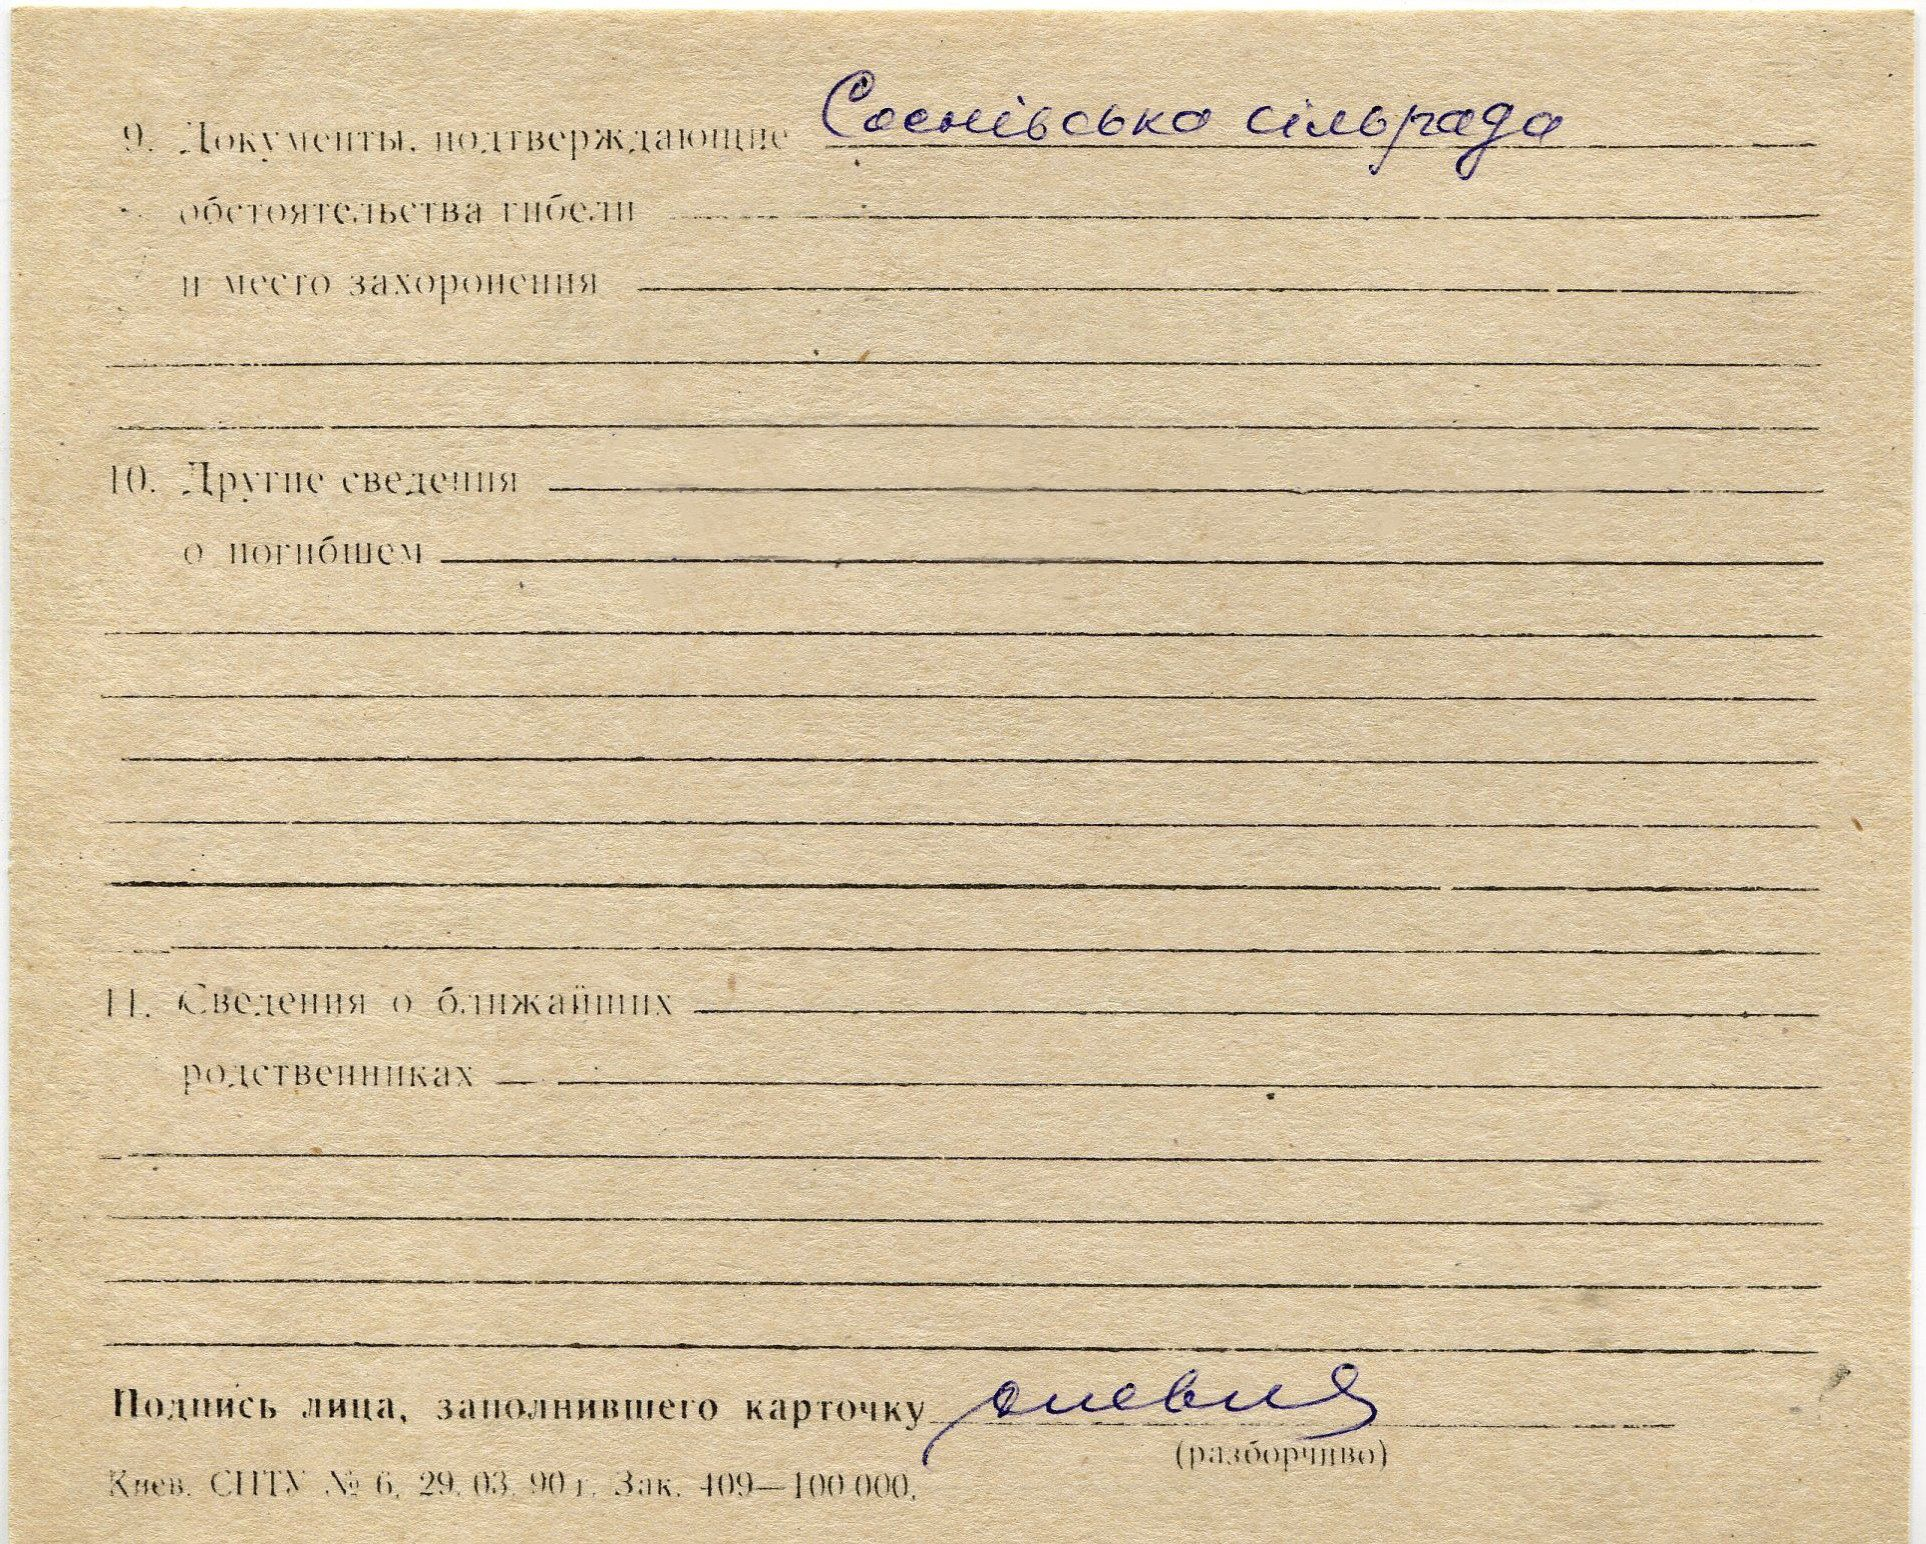 9. Документы, подтверждающие Соснівсько сільрада
обстоятельства гибели
и место захоронения
10. Другие сведения
о погибшем
11. Сведения о ближайших
родственниках
Подпись лица, заполнившего карточку
(разборчиво)
Киев. СПТУ № 6, 29. 03. 90 г. Зак. 409—100 000.